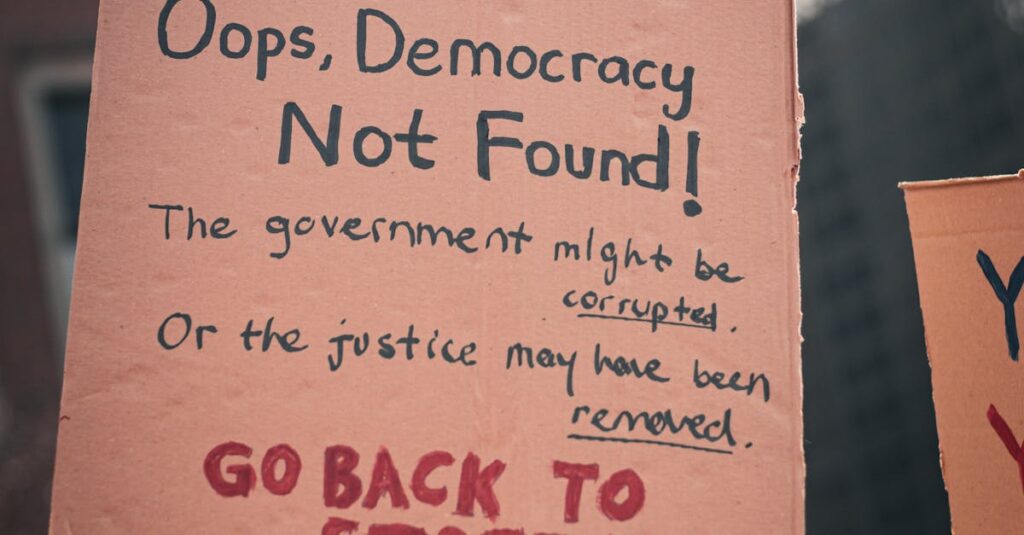 Oops, Democracy
Not Found!
The government might be
corrupted.
Or the justice may have been
removed.
GO BACK TO
Y
Y